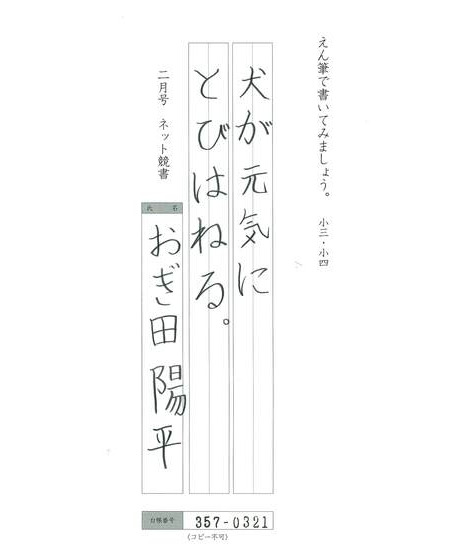 えん筆で書いてみましょう。 小三・小四
犬が元気に
とびはねる。
二月号 ネット競書
氏 名
おぎ田 陽平
台帳番号
357-0321
(コピー不可)